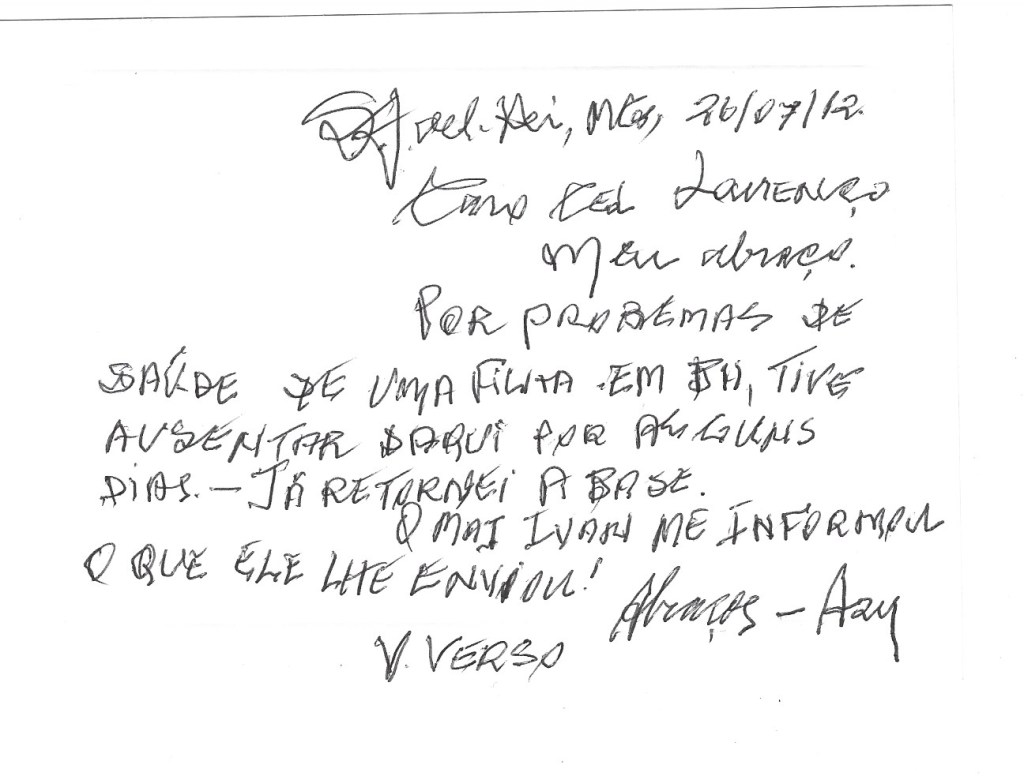 S. J. del-Rei, MGs, 26/07/12.
Caro Cel Lourenço
Meu abraço.
POR PROBLEMAS DE
SAÚDE DE UMA FILHA EM BH, TIVE
AUSENTAR DAQUI POR ALGUNS
DIAS. — JÁ RETORNEI A BASE.
O MAJ IVAN ME INFORMOU
O QUE ELE LHE ENVIOU!
Abraços —
V. VERSO